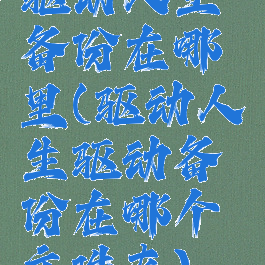 驱动人生
备份在哪
里(驱动人
生驱动备
份在哪个
文件夹)